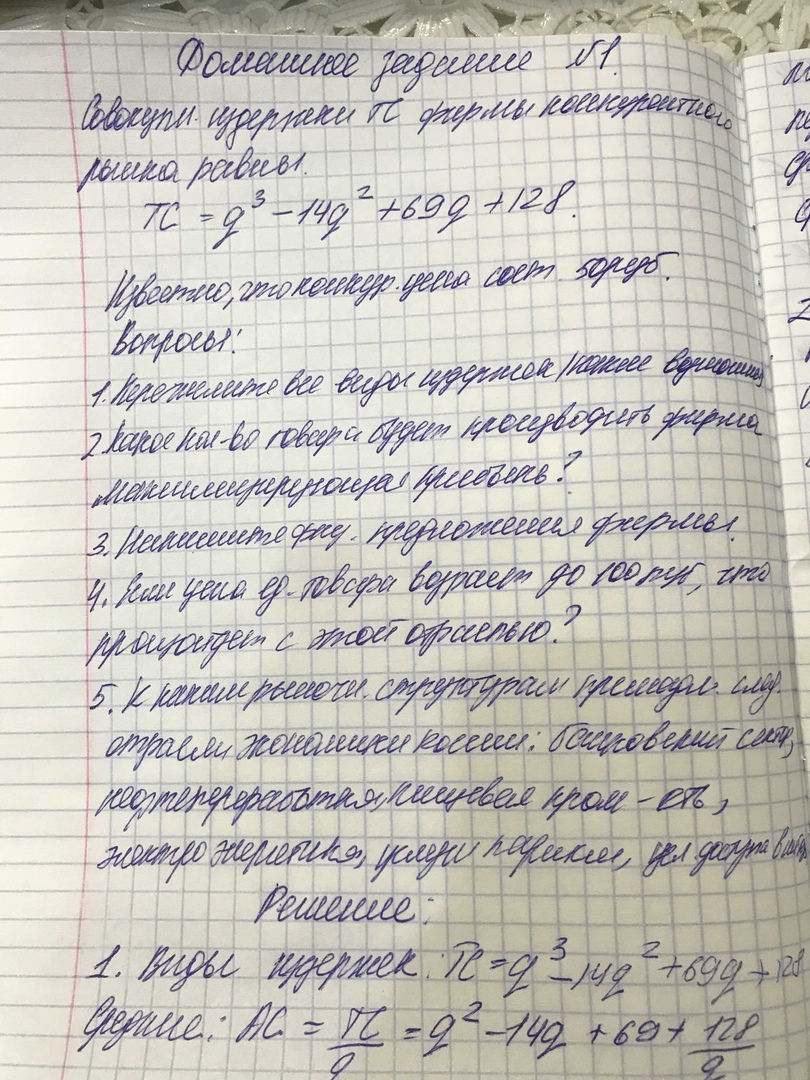 Домашнее задание №1.
Совокупн. издержки TC фирмы конкурентного
рынка равны.
TC = q³ - 14q² + 69q + 128.
Известно, что конкур. цена сост. 50 руб.
Вопросы:
1. Перечислите все виды издержек /какие возможно/
2. Какое кол-во товара будет производить фирма
максимизирующая прибыль?
3. Напишите фну. предложения фирмы.
4. Если цена ед. товара возрастет до 100 руб, что
произойдет с этой отраслью?
5. К каким рыночн. структурам принадл. след.
отрасли экономики России: банковский сектор,
нефтепереработка, пищевая пром-сть,
электроэнергетика, услуги парикм, усл. доступа в
Решение:
1. Виды издержек: TC = q³ - 14q² + 69q + 128
Средние: AC = TC/q = q² - 14q + 69 + 128/q